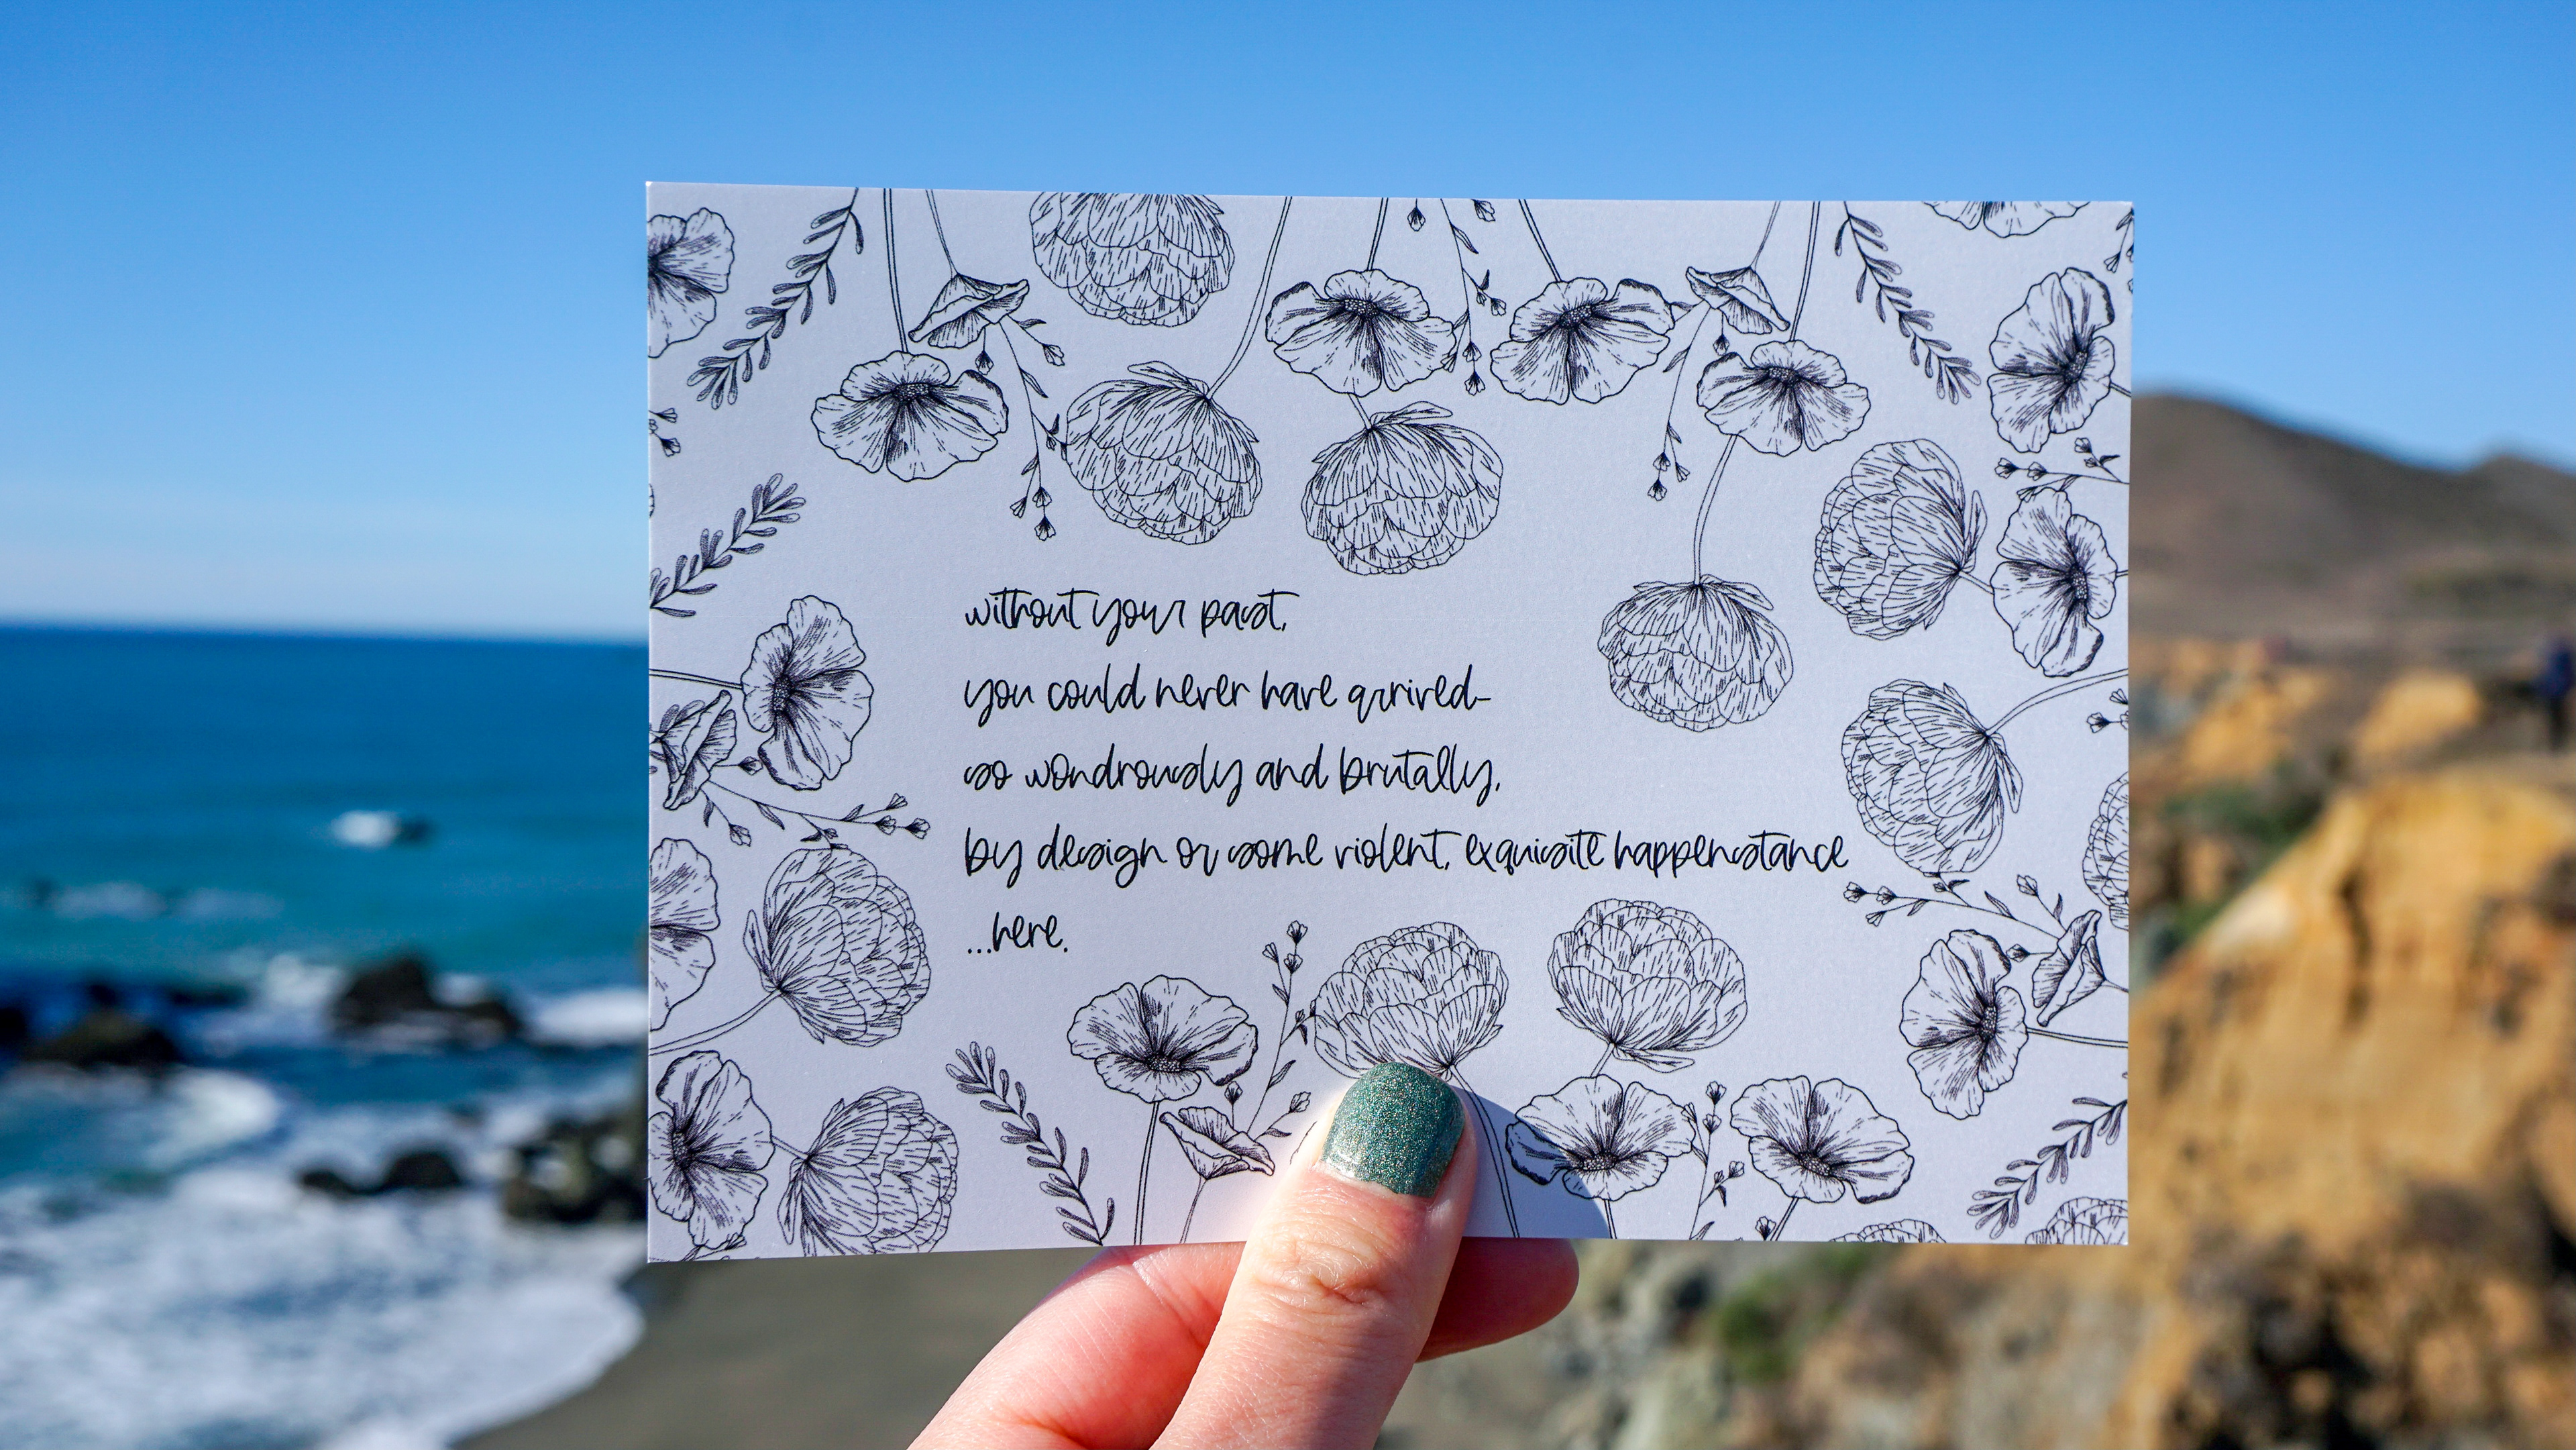 without your past,
you could never have arrived-
so wondrously and brutally,
by design or some violent, exquisite happenstance
...here.